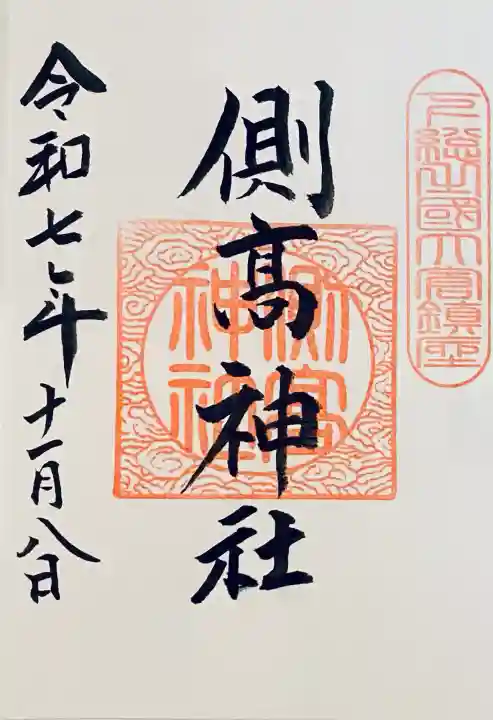 下総之國大倉鎮座
側高神社
側高神社
令和七年十一月八日